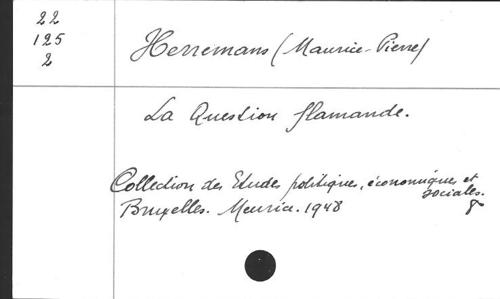 22
125
2
Herremans (Maurice-Pierre)
La Question flamande.
Collection des Etudes politiques, économiques et
sociales.
Bruxelles. Meurice. 1948
8